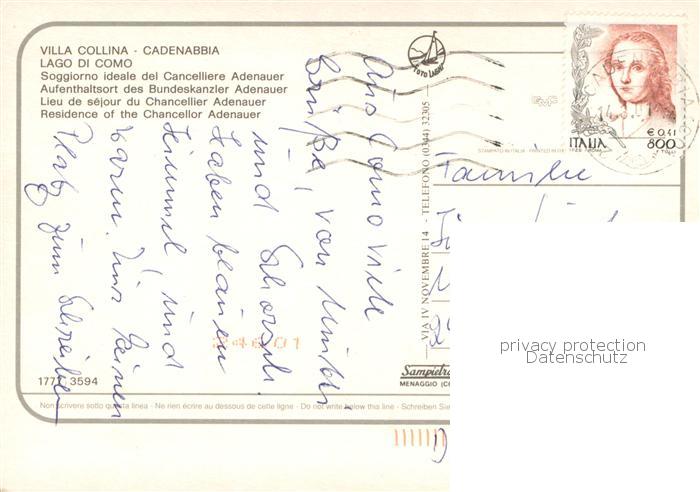 VILLA COLLINA - CADENABBIA
LAGO DI COMO
Soggiorno ideale del Cancelliere Adenauer
Aufenthaltsort des Bundeskanzler Adenauer
Lieu de séjour du Chancellier Adenauer
Residence of the Chancellor Adenauer
FOTO LABOR
ITALIA
€ 0,41
800
STAMPATO IN ITALIA - PRINTED IN
Aus Como viele
Grüße, von
und
Haben blauen
Himmel, und
warm. Nur keinen
Platz zum Schreiben
Familie
VIA IV NOVEMBRE 14 - TELEFONO (0344) 32305
24 6 01
Sampietro
MENAGGIO (CO
1777 3594
Non scrivere sotto questa linea - Ne rien écrire au dessous de cette ligne - Do not write below this line - Schreiben Sie
privacy protection
Datenschutz